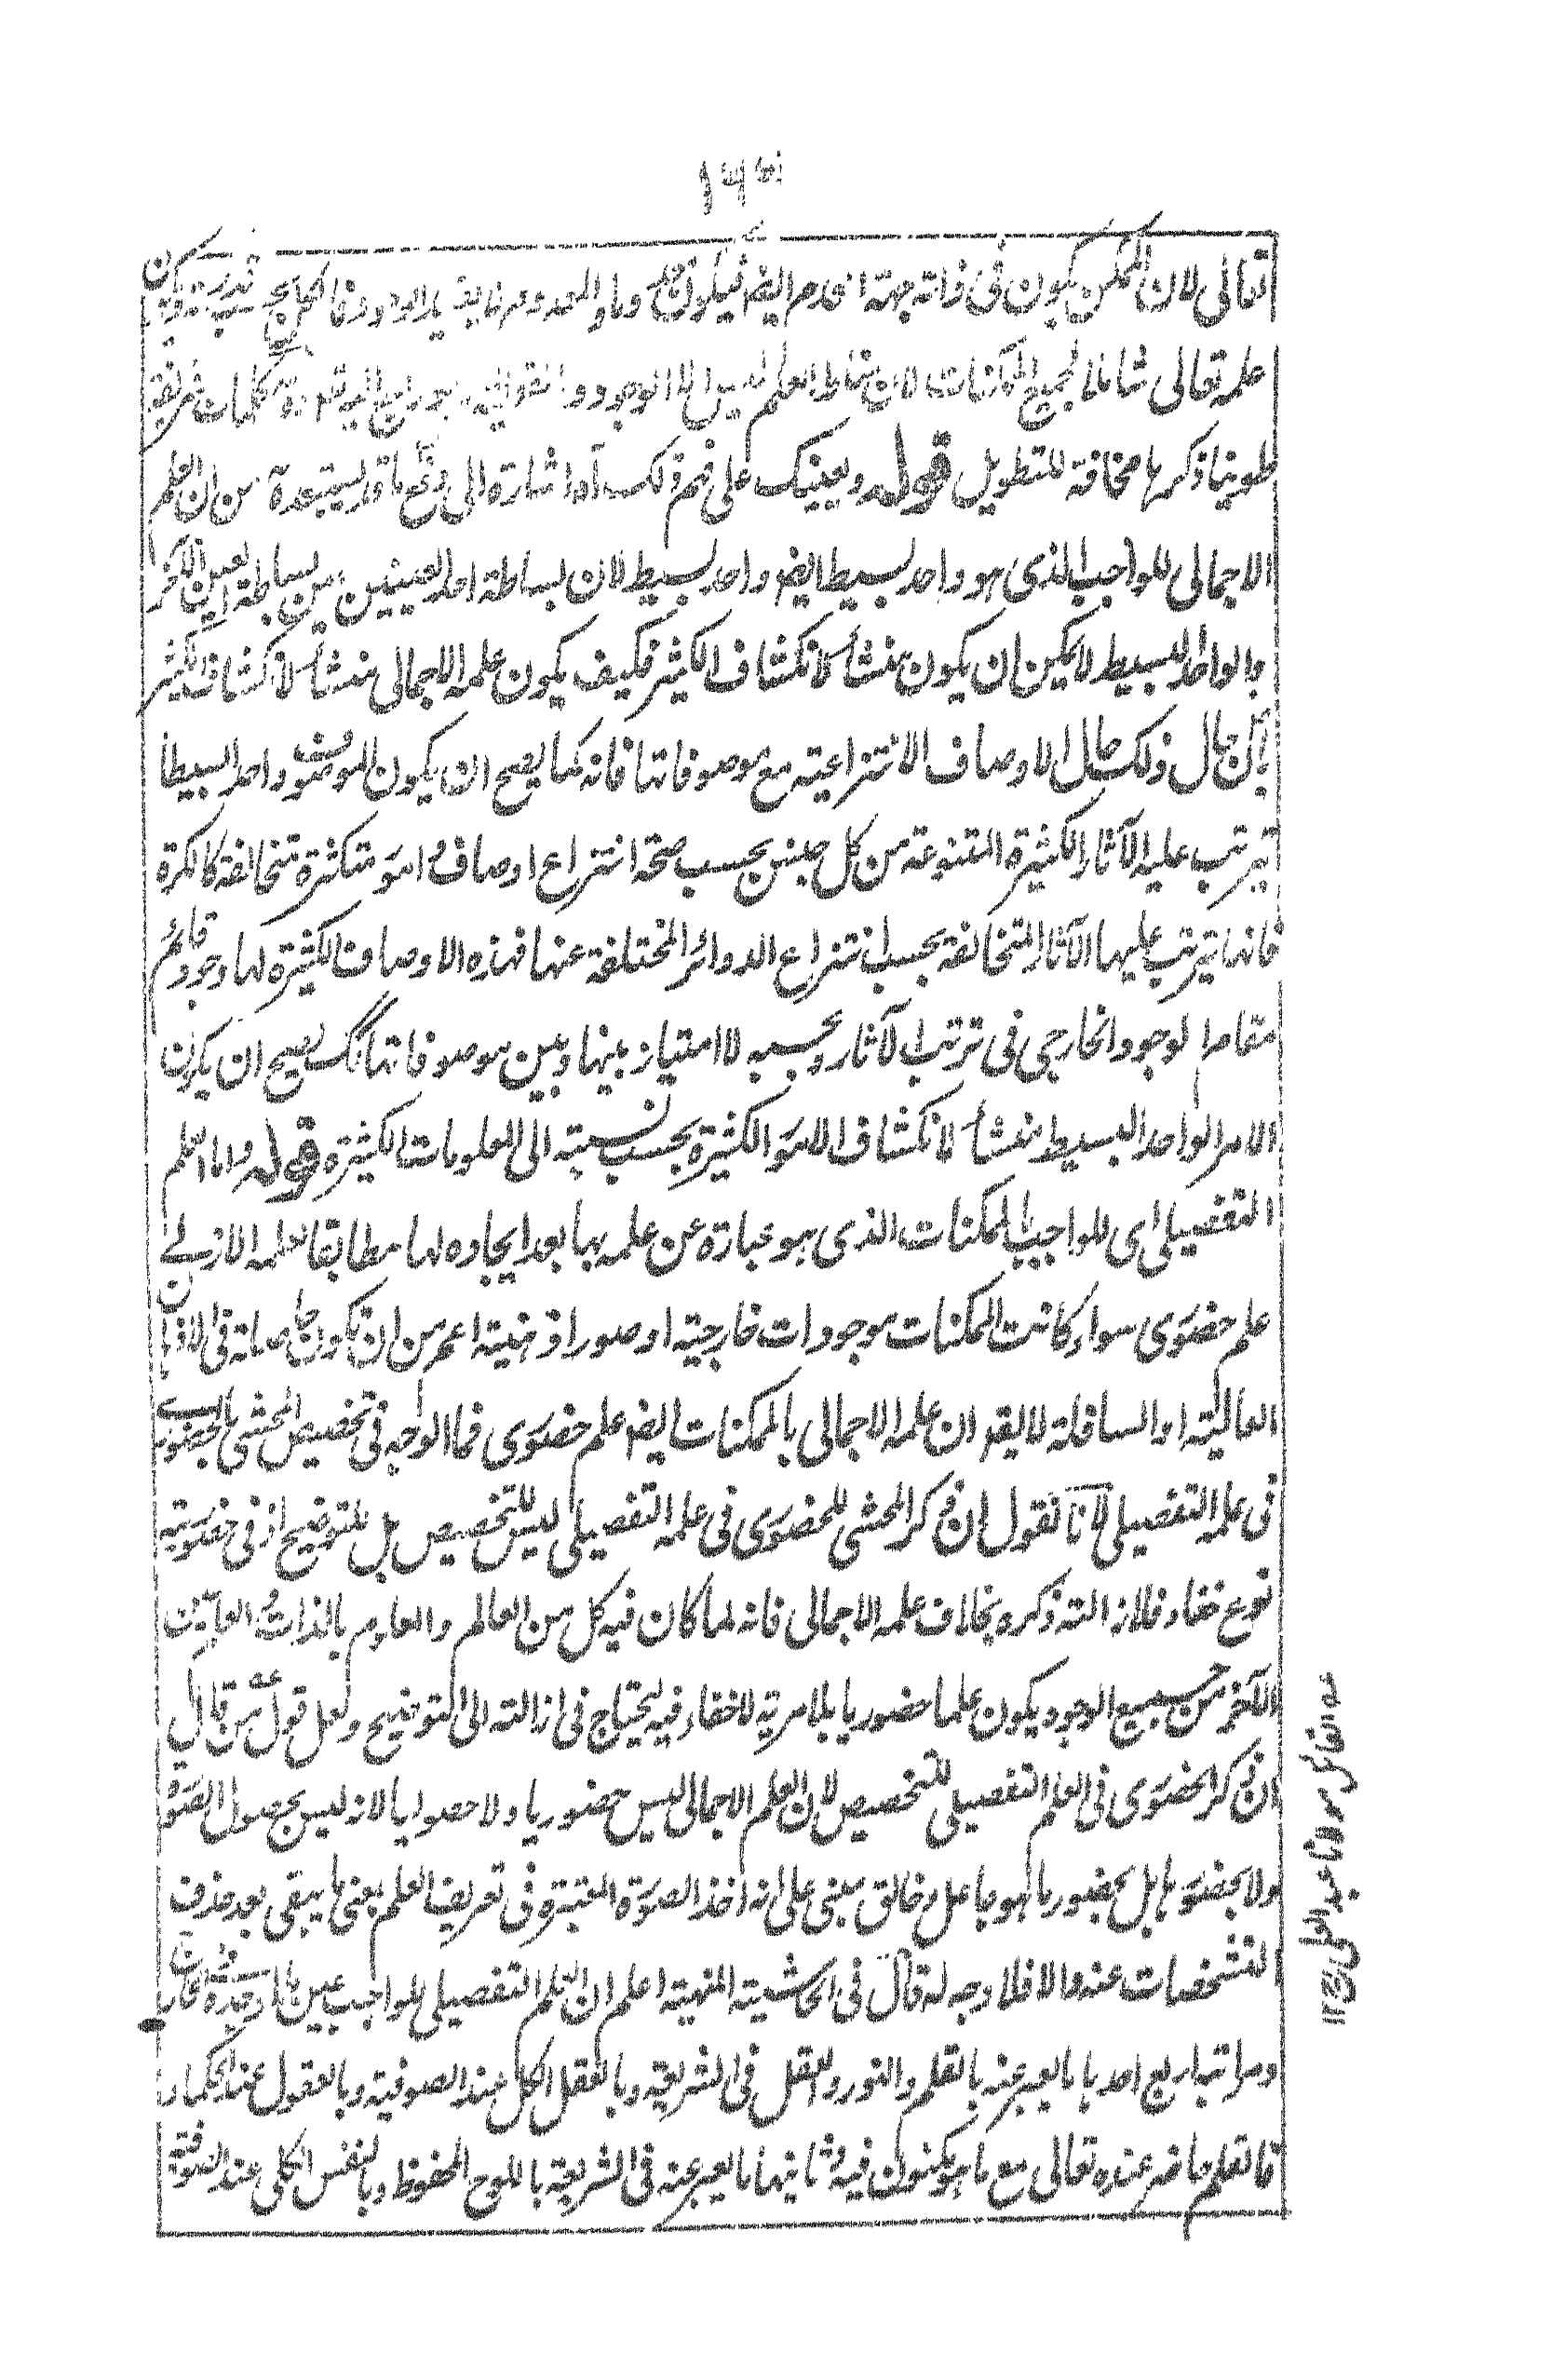 تعالى لان الممكن يكون فى ذاته جهة العدم ايضا فيكون
علمه تعالى شاملا لجميع الممكنات لان مناط العلم ليس الا الوجود
طوينا ذكرها مخافة للتطويل قوله ويعينك على فهم ذلك آه اشارة الى دفع ما قد يستبعد من ان العلم
الاجمالى للواجب الذى هو واحد بسيط ايضا واحد بسيط لان بساطة احد العينين عين بساطة العين الآخر
والواحد البسيط لا يمكن ان يكون منشأ لانكشاف الكثير فكيف يكون علمه الاجمالى منشأ لانكشاف الكثير
بان حال ذلك كحال الاوصاف الانتزاعية مع موصوفاتها فانه كما يصح ان يكون الموصوف واحدا بسيطا
تيرتب عليه الآثار الكثيرة المتنوعة من كل جنس بحسب صحة انتزاع اوصاف و امور متكثرة متخالفة كالكرة
فانها تيرتب عليها الآثار المتخالفة بحسب انتزاع الدوائر المختلفة عنها فهذه الاوصاف الكثيرة لها وجود قائم
مقام الوجود الخارجى فى ترتب الآثار وبحسبه لا امتياز بينها وبين موصوفاتها كك يصح ان يكون
الامر الواحد البسيط منشأ لانكشاف الامور الكثيرة بحسب نسبته الى المعلومات الكثيرة قوله واما العلم
التفصيلى اى للواجب بالممكنات الذى هو عبارة عن علمه بها بعد ايجاده لها مطابقا لعلمه الازلے
علم حضورى سواء كانت الممكنات موجودات خارجية او صورا ذهنية اعم من ان تكون حاصلة فى الاذهان
العالية او السافلة لا يقم ان علمه الاجمالى بالممكنات ايضا علم حضورى فما الوجه فى تخصيص المحشى بالحضورى
فى علمه التفصيلى لانا نقول ان ذكر المحشى للحضورى فى علمه التفصيلى ليس للتخصيص بل للتوضيح اذ فى حضوريته
نوع خفاء فلازالته ذكره بخلاف علمه الاجمالى فانه لما كان فيه كل من العالم والمعلوم بالذات و العلم عين
الآخر من جميع الوجوه يكون علما حضوريا بلا مرية لا خفاء فيه ليحتاج فى ازالته الى التوضيح ولعل قول من قال
ان ذكر الحضورى فى العلم التفصيلى للتخصيص لان العلم الاجمالى ليس حضوريا ولا حصوليا لانه ليس بحصول الصورة
ولا بحضورها بل بحضور ما هو جاعل و خالق مبنى على انه اخذ الصورة المعتبرة فى تعريف العلم بمعنى ما يبقى بعد حذف
التشخصات عنه والا فلا وجه له قال فى الحاشية المنهية اعلم ان العلم التفصيلى للواجب عين ما اوجده فى الخارج
ومراتبه اربع احدها ما يعبر عنه بالقلم والنور والعقل فى الشريعة وبالعقل الكل عند الصوفية وبالعقول عند الحكماء
فالقلم حاضر عنده تعالى مع ما هو مكنون فيه وثانيها ما يعبر عنه فى الشريعة باللوح المحفوظ وبالنفس الكلى عند الصوفية
عه القائل مولانا عبد العلى رح ١٢